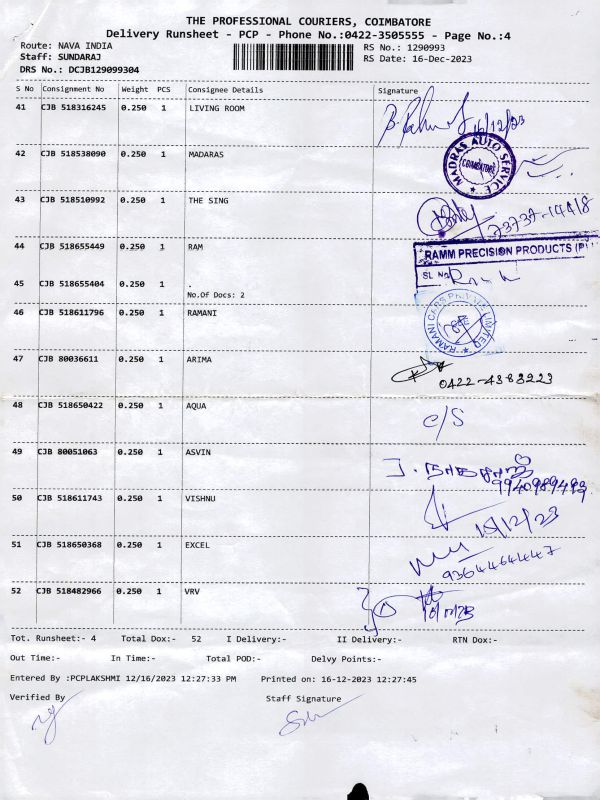 THE PROFESSIONAL COURIERS, COIMBATORE
Delivery Runsheet - PCP - Phone No.:0422-3505555 - Page No.:4
Route: NAVA INDIA
RS No.: 1290993
Staff: SUNDARAJ
RS Date: 16-Dec-2023
DRS No.: DCJB129099304
S No Consignment No Weight PCS Consignee Details Signature
41 CJB 518316245 0.250 1 LIVING ROOM
16/12/23
42 CJB 518538090 0.250 1 MADARAS
MADRAS AUTO SERVICE
COIMBATORE
43 CJB 518510992 0.250 1 THE SING
73737-14418
44 CJB 518655449 0.250 1 RAM
RAMM PRECISION PRODUCTS (P)
SL No
45 CJB 518655404 0.250 1 .
No.Of Docs: 2
46 CJB 518611796 0.250 1 RAMANI
RAMANI CARS PRIVATE LIMITED
47 CJB 80036611 0.250 1 ARIMA
0422-4383223
48 CJB 518650422 0.250 1 AQUA
c/s
49 CJB 80051063 0.250 1 ASVIN
50 CJB 518611743 0.250 1 VISHNU
51 CJB 518650368 0.250 1 EXCEL
52 CJB 518482966 0.250 1 VRV
Tot. Runsheet:- 4 Total Dox:- 52 I Delivery:- II Delivery:- RTN Dox:-
Out Time:- In Time:- Total POD:- Delvy Points:-
Entered By :PCPLAKSHMI 12/16/2023 12:27:33 PM Printed on: 16-12-2023 12:27:45
Verified By Staff Signature